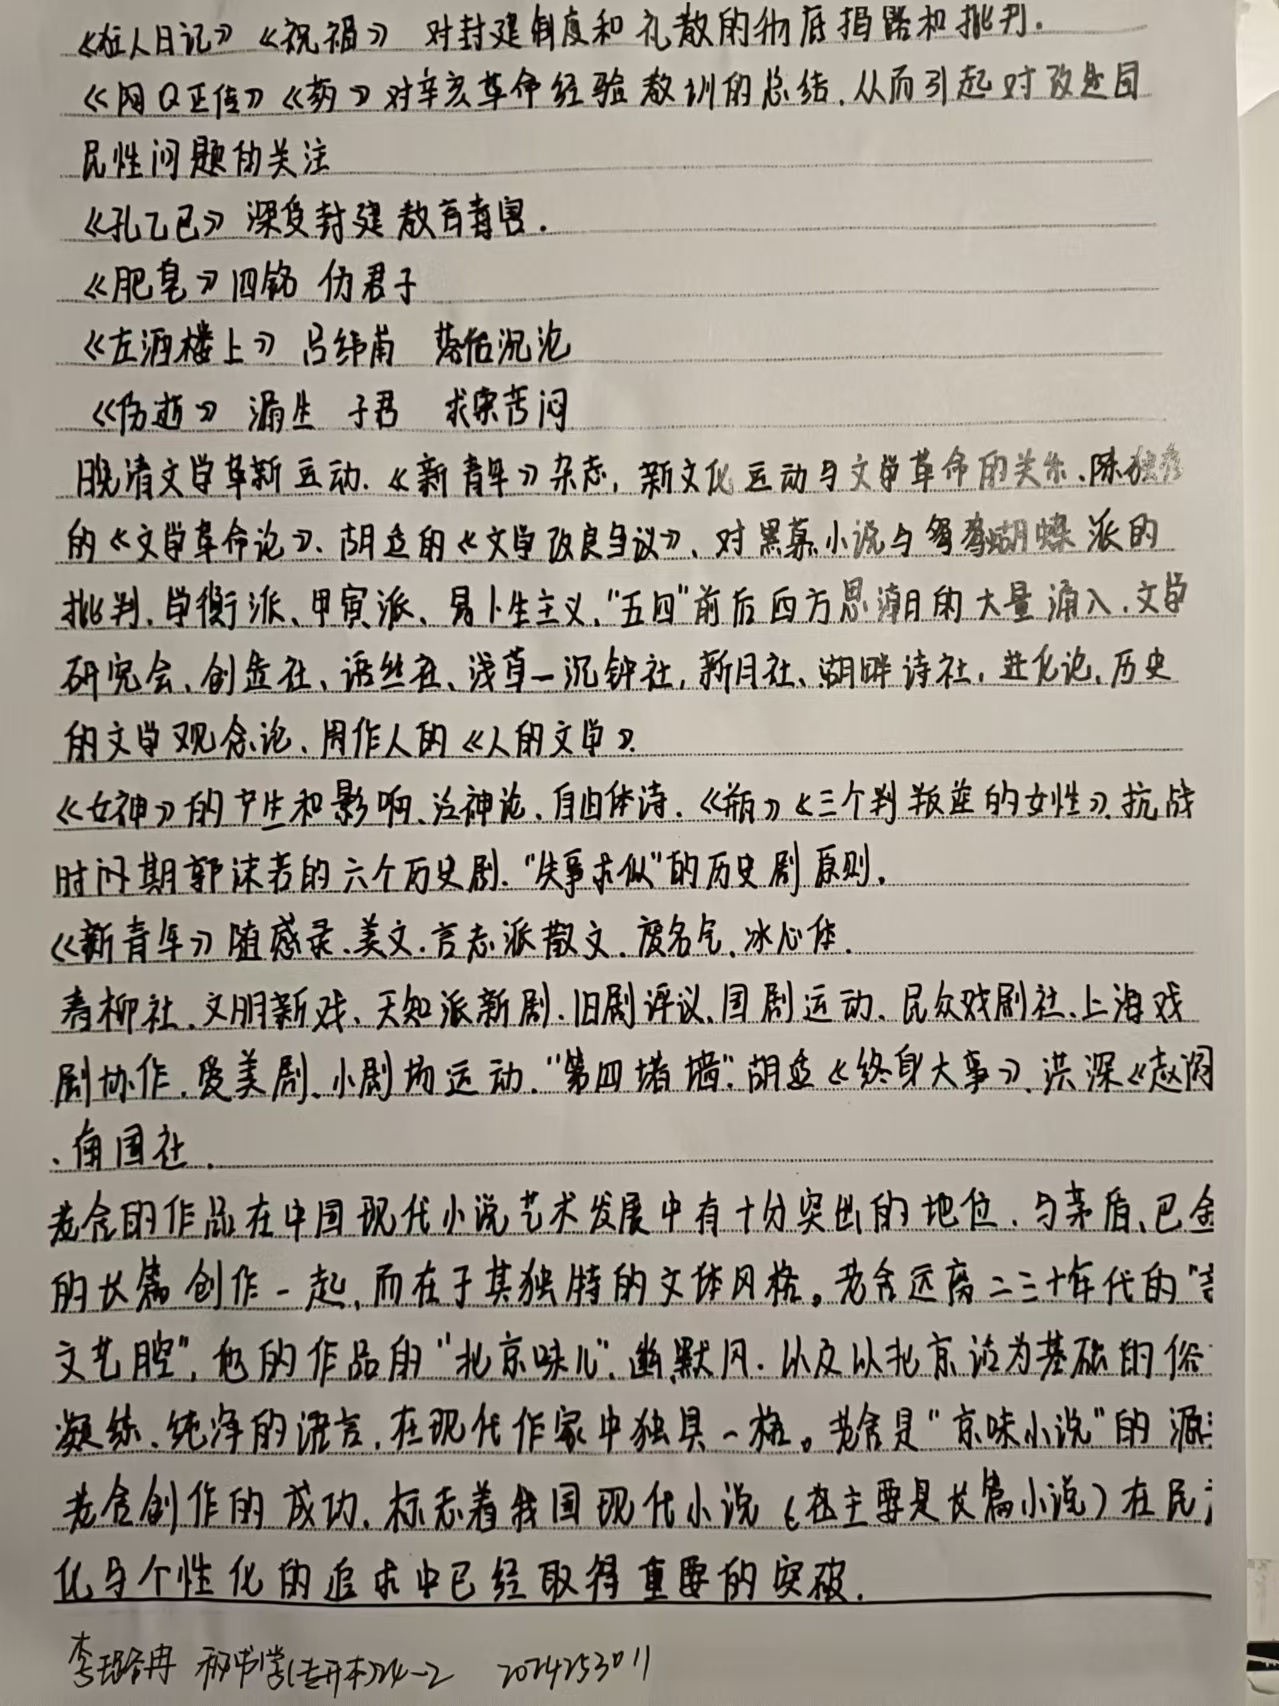 《狂人日记》《祝福》 对封建制度和礼教的彻底揭露和批判.
《阿Q正传》《药》对辛亥革命经验教训的总结,从而引起对改造国
民性问题的关注
《孔乙己》深受封建教育毒害.
《肥皂》四铭 伪君子
《在酒楼上》吕纬甫 落伍沉沦
《伤逝》 涓生 子君 求索苦闷
晚清文学革新运动.《新青年》杂志,新文化运动与文学革命的关系、陈独秀
的《文学革命论》、胡适的《文学改良刍议》、对黑幕小说与鸳鸯蝴蝶派的
批判、学衡派、甲寅派、易卜生主义,"五四"前后西方思潮的大量涌入.文学
研究会、创造社、语丝社、浅草一沉钟社,新月社、湖畔诗社,进化论,历史
的文学观念论、周作人的《人的文学》.
《女神》的产生和影响、泛神论、自由体诗.《瓶》《三个判叛逆的女性》.抗战
时间期郭沫若的六个历史剧."失事求似"的历史剧原则.
《新青年》随感录、美文.言志派散文.废名气、冰心体.
春柳社.文明新戏、天知派新剧.旧剧评议.国剧运动.民众戏剧社.上海戏
剧协作.爱美剧、小剧场运动."第四堵墙".胡适《终身大事》.洪深《赵阎
、南国社.
老舍的作品在中国现代小说艺术发展中有十分突出的地位.与茅盾、巴金
的长篇创作一起,而在于其独特的文体风格。老舍远离二三十年代的"
文艺腔",他的作品的"北京味儿".幽默风.以及以北京话为基础的俗
凝练、纯净的语言,在现代作家中独具一格。老舍是"京味小说"的源
老舍创作的成功,标志着我国现代小说(在主要是长篇小说)在民
化与个性化的追求中已经取得重要的突破.
秘书学(专升本)24-2 2024253011